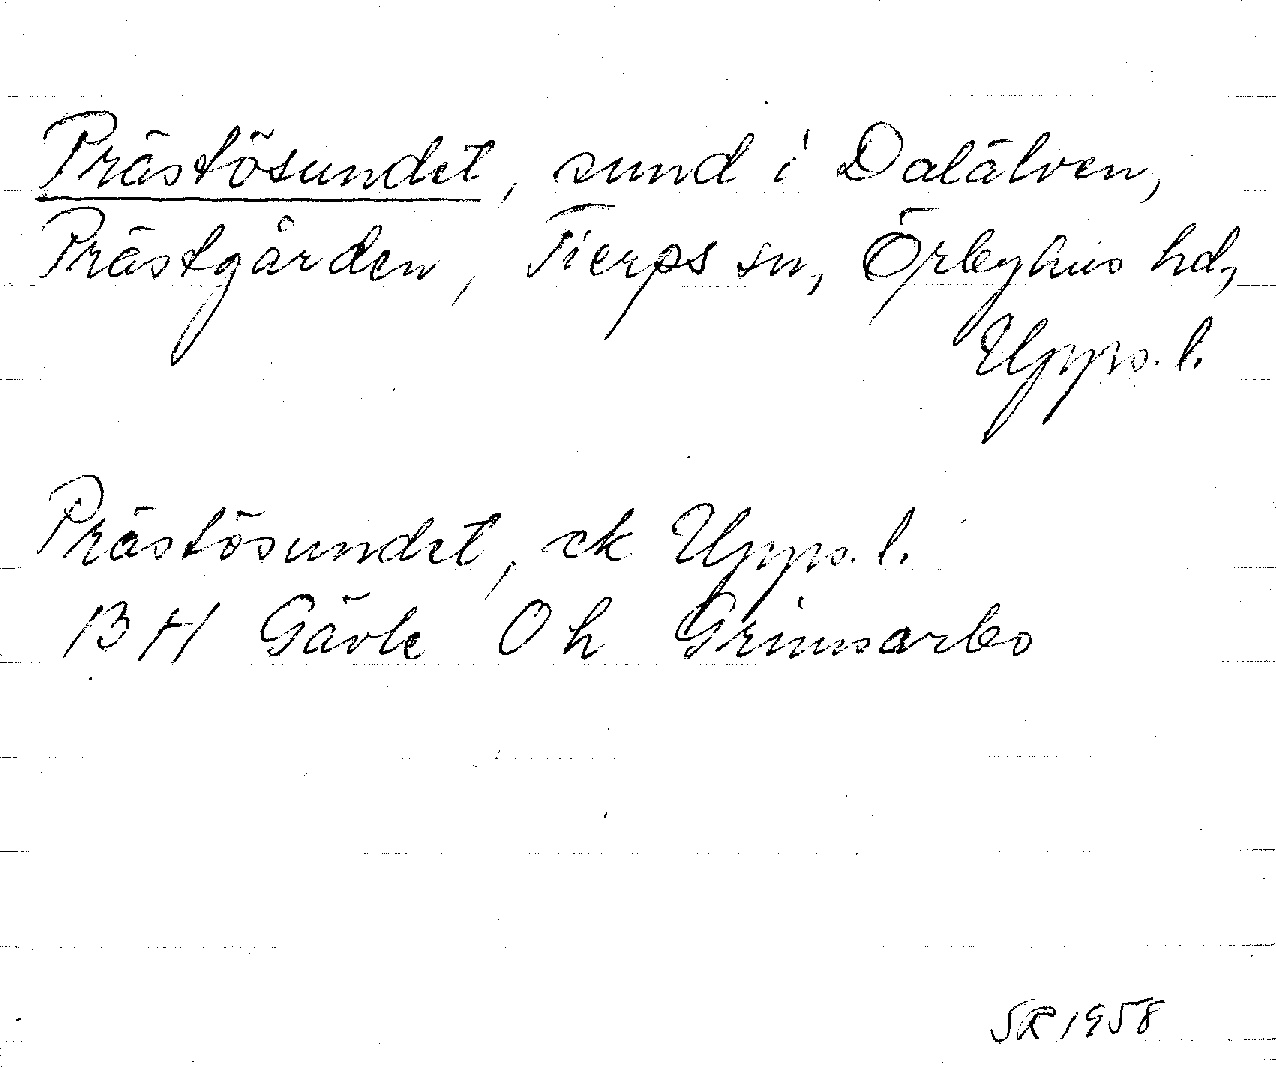 Prästösundet, sund i Dalälven,
Prästgården, Tierps sn, Örbyhus hd,
Upps. l.
Prästösundet, ek Upps. l.
BH Gävle Oh Grinnarbo
SR 1958